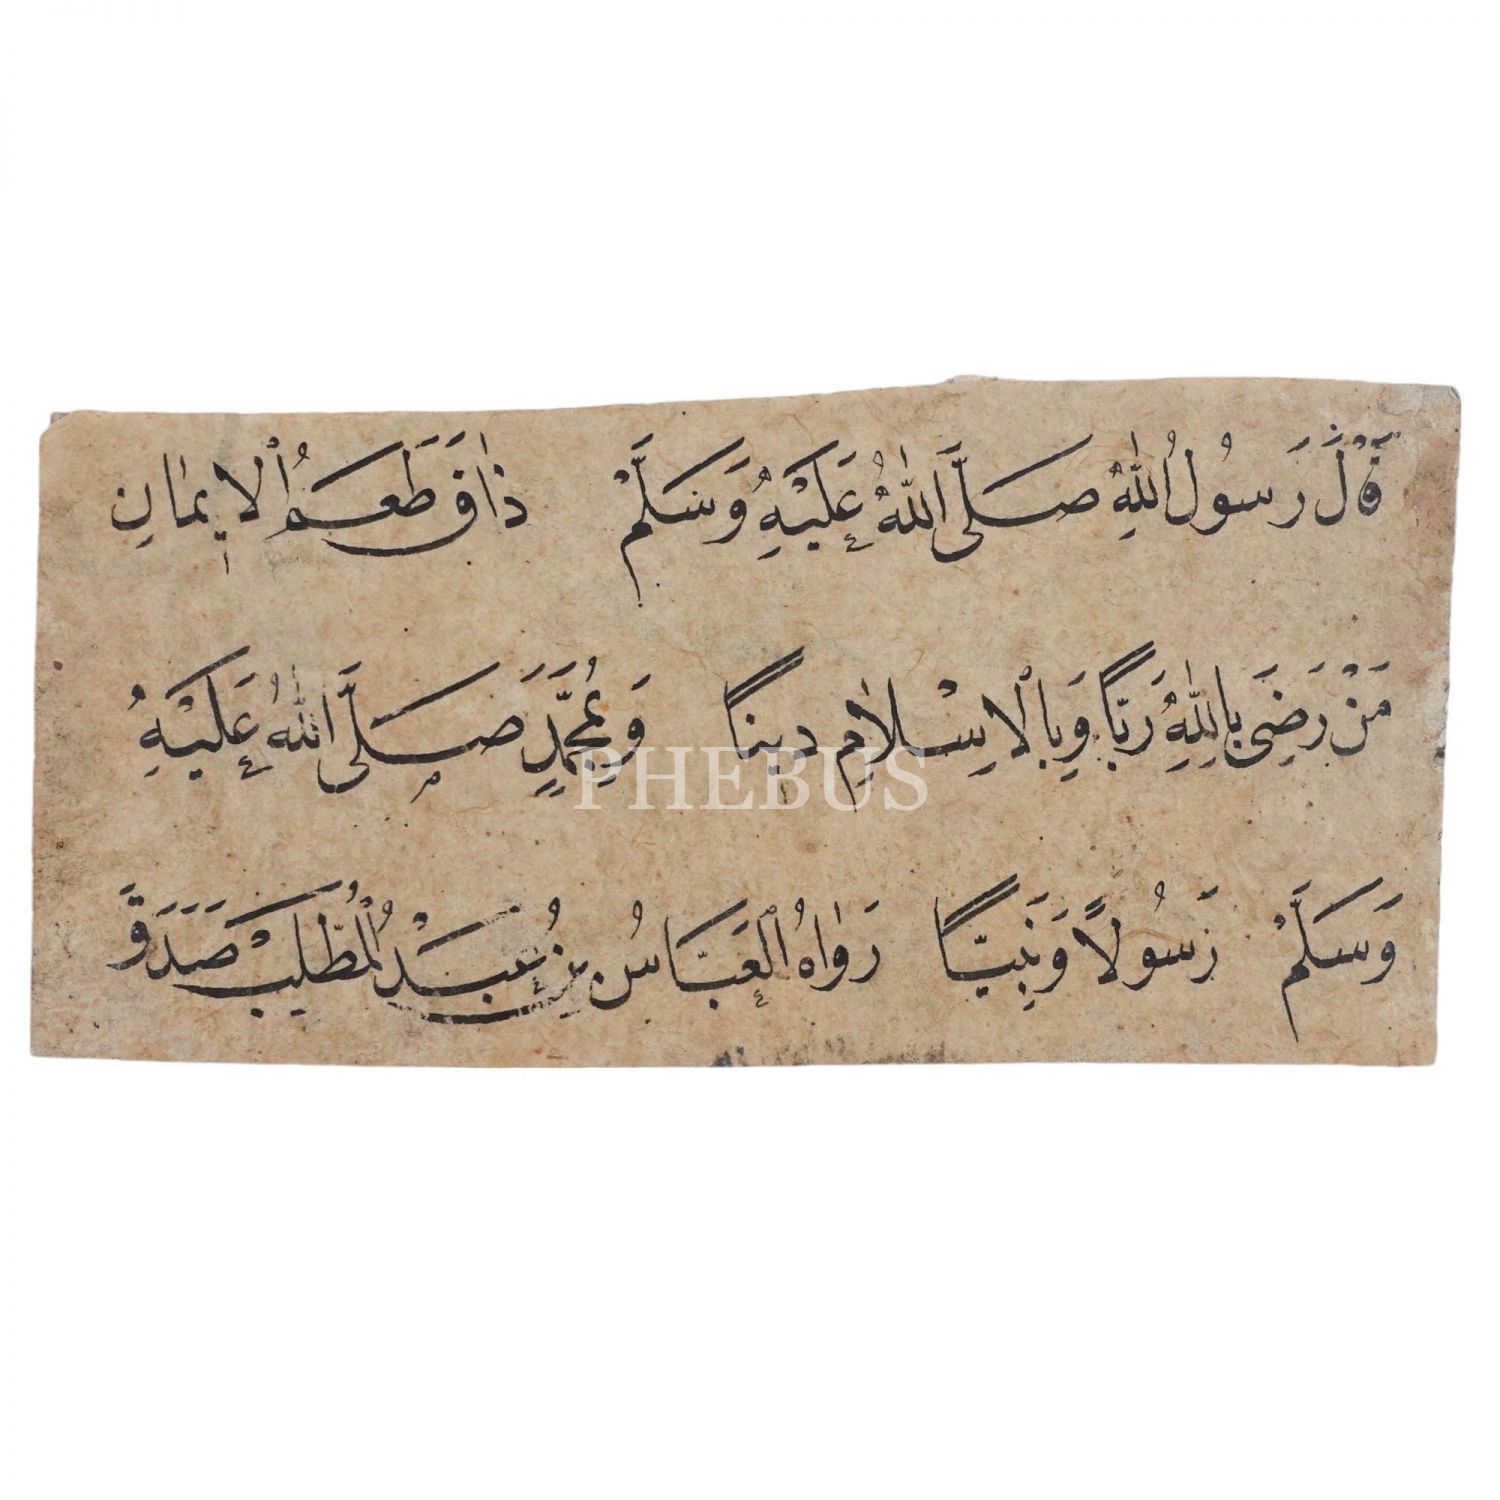 قَالَ رَسُولُ اللّٰهِ صَلَّى اللّٰهُ عَلَيْهِ وَسَلَّمْ ذَاقَ طَعَمُ الْاِيمَانِ
مَنْ رَضِىَ بِاللّٰهِ رَبًّا وَبِالْاِسْلَامِ دِينًا وَبِمُحَمَّدٍ صَلَّى اللّٰهُ عَلَيْهِ
PHEBUS
وَسَلَّمْ رَسُولًا وَنَبِيًّا رَوَاهُ الْعَبَّاسُ بْنُ عَبْدُ الْمُطَّلِبْ صَدَقَ